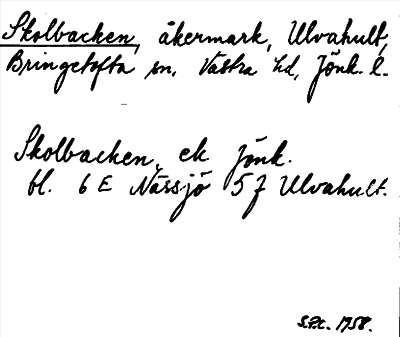 Skolbacken, åkermark, Ulvahult,
Bringetofta sn, Västra hd, Jönk. l.
Skolbacken, ek Jönk.
bl. 6 E Nässjö 5 f Ulvahult.
1958.